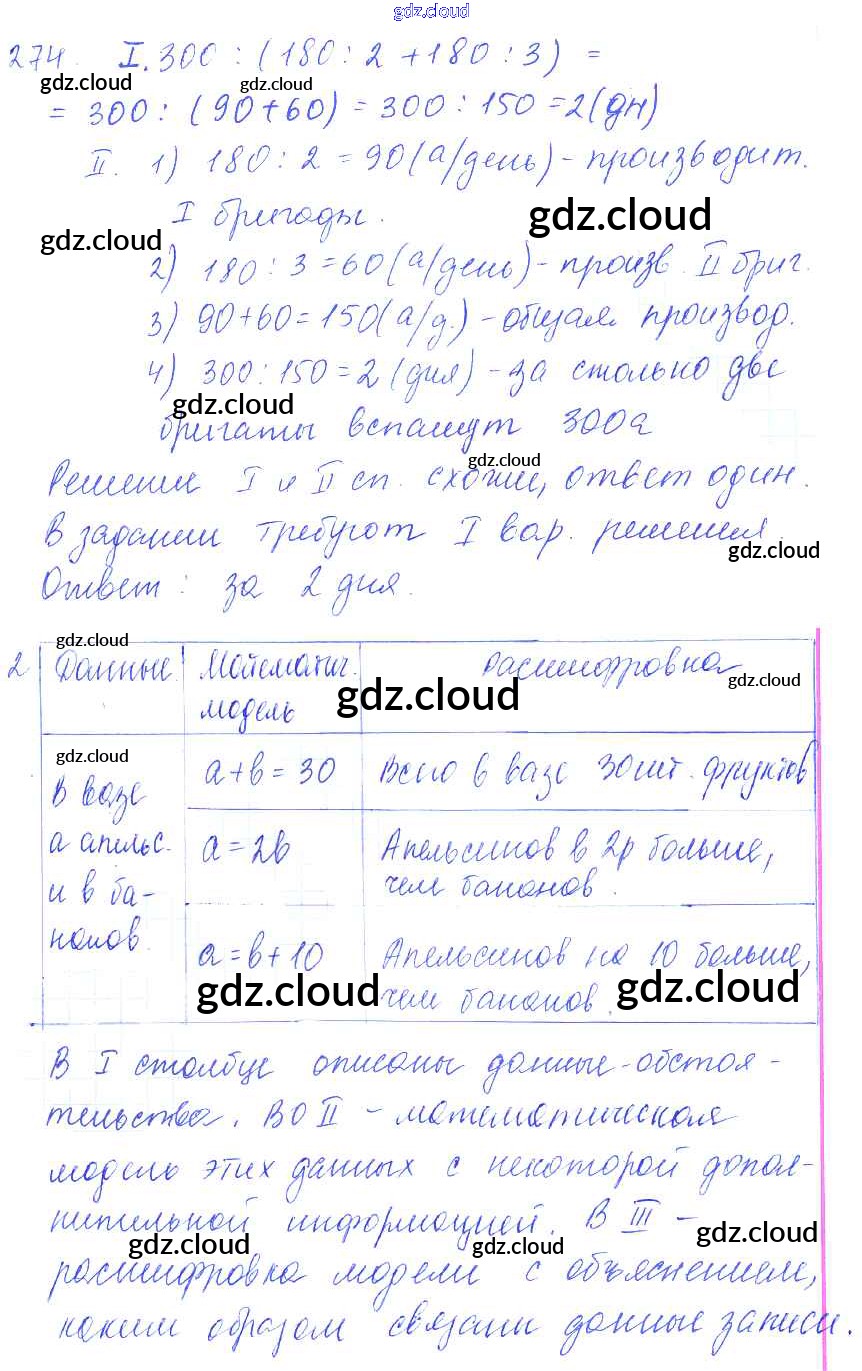 gdz.cloud
274. I. 300 : (180 : 2 + 180 : 3) =
gdz.cloud gdz.cloud
= 300 : (90 + 60) = 300 : 150 = 2 (дн)
II. 1) 180 : 2 = 90 (а/день) - производит.
I бригады.
gdz.cloud
gdz.cloud
2) 180 : 3 = 60 (а/день) - произв. II бриг.
3) 90 + 60 = 150 (а/д.) - общая производ.
4) 300 : 150 = 2 (дня) - за столько две
gdz.cloud
бригаты вспашут 300а
gdz.cloud
Решения I и II сп. схожи, ответ один.
В задании требуют I вар. решения.
gdz.cloud
Ответ: за 2 дня.
gdz.cloud
2 Данные Математич. Расшифровка
gdz.cloud
модель
gdz.cloud
gdz.cloud
a + b = 30 Всего в вазе 30 шт. фруктов
В вазе
а апельс. a = 2b Апельсинов в 2р больше,
и в ба- чем бананов.
нанов. a = b + 10 Апельсинов на 10 больше,
gdz.cloud чем бананов. gdz.cloud
В I столбце описаны данные-обстоя-
тельства. Во II - математическая
модель этих данных с некоторой допол-
нительной информацией. В III -
gdz.cloud gdz.cloud gdz.cloud
расшифровка модели с объяснением,
каким образом связаны данные записи.